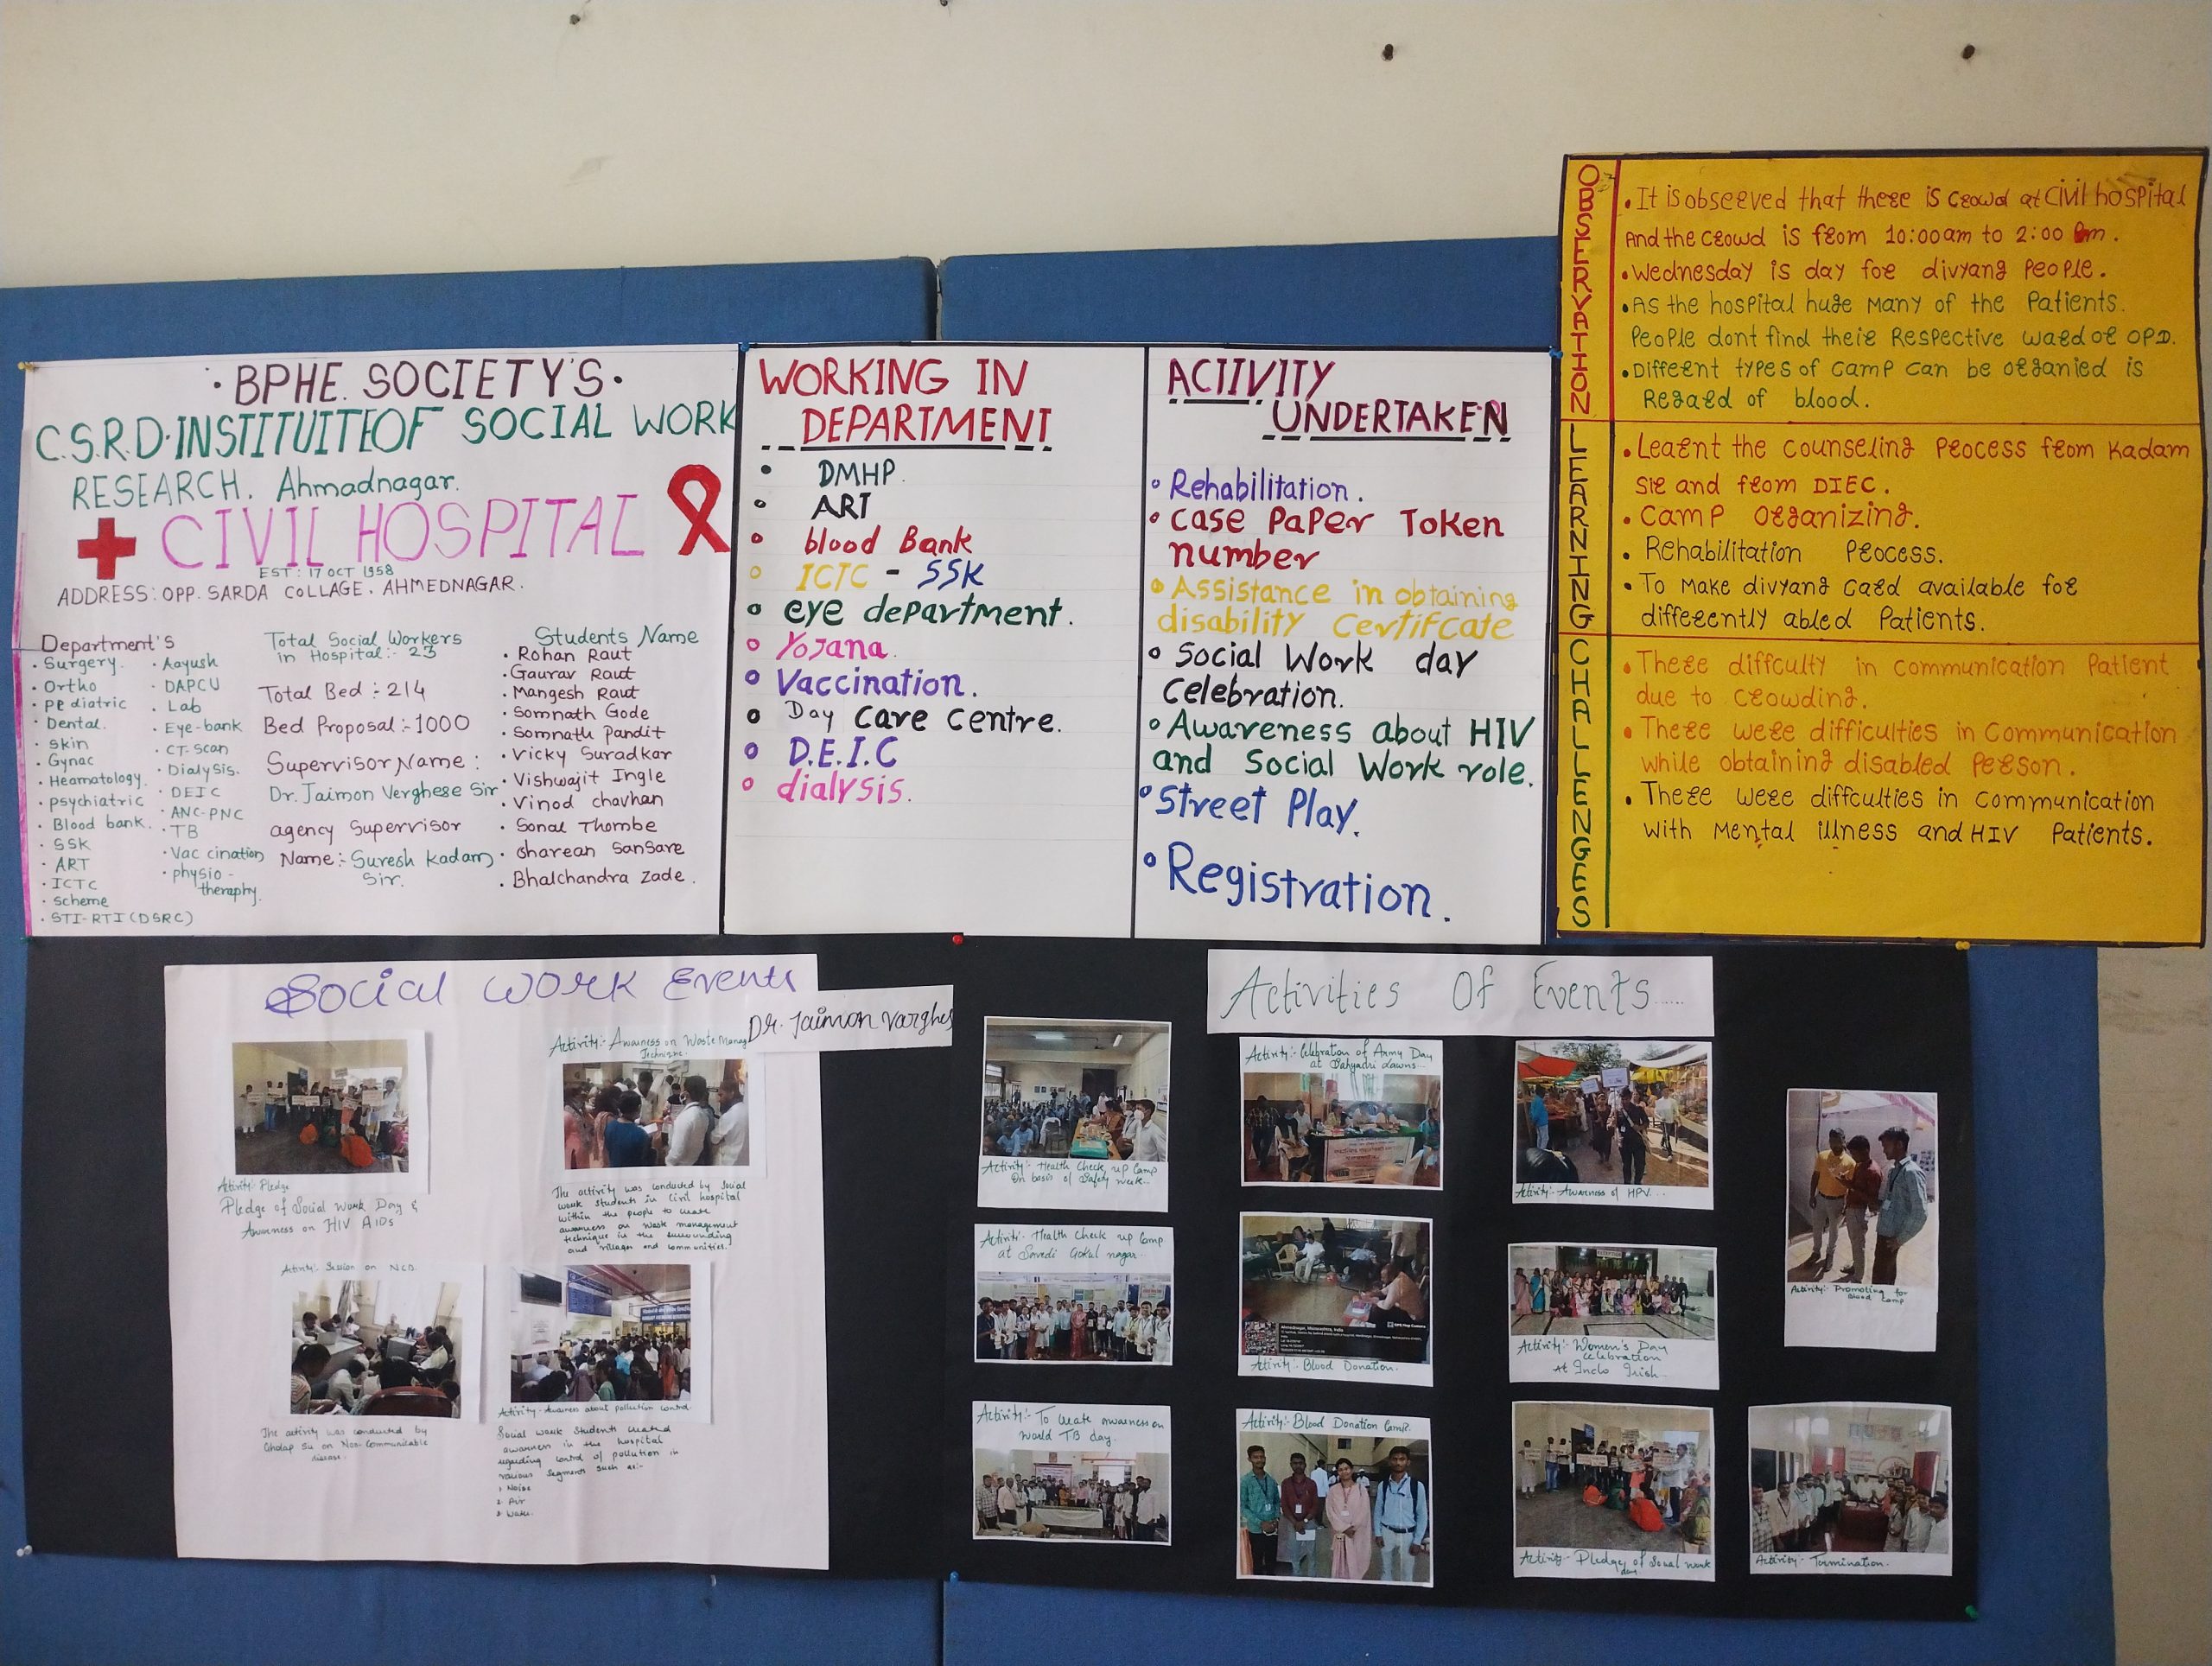 · BPHE. SOCIETY'S ·
C.S.R.D. INSTITUITE OF SOCIAL WORK
RESEARCH. Ahmadnagar.
CIVIL HOSPITAL
EST: 17 OCT 1958
ADDRESS: OPP. SARDA COLLAGE. AHMEDNAGAR.
Department's
· Surgery.
· Ortho
· pediatric
· Dental.
· skin
· Gynac
· Heamatology.
· psychiatric
· Blood bank.
· SSK
· ART
· ICTC
· scheme
· STI-RTI (DSRC)
· Aayush
· DAPCU
· Lab
· Eye-bank
· CT-Scan
· Dialysis.
· DEIC
· ANC-PNC
· TB
· Vaccination
· physio-
theraphy.
Total Social Workers
in Hospital:- 23
Total Bed :- 214
Bed Proposal :- 1000
Supervisor Name :
Dr. Jaimon Verghese Sir
agency Supervisor
Name:- Suresh Kadam
Sir.
Students Name
· Rohan Raut
· Gaurav Raut
· Mangesh Raut
· Somnath Gode
· Somnath Pandit
· Vicky Suradkar
· Vishwajit Ingle
· Vinod chavhan
· Sonal Thombe
· Sharean Sansare
· Bhalchandra Zade.
WORKING IN
DEPARTMENT
DMHP.
ART
blood Bank
ICTC - SSK
eye department.
Yojana.
Vaccination.
Day care centre.
D.E.I.C
dialysis.
ACTIVITY
UNDERTAKEN
Rehabilitation.
case paper Token
number
Assistance in obtaining
disability Certifcate
Social Work day
celebration.
Awareness about HIV
and Social Work role.
Street Play.
Registration.
OBSERVATION
· It is observed that there is crowd at civil hospital
And the crowd is from 10:00am to 2:00 Pm.
· Wednesday is day for divyang people.
· As the hospital huge Many of the Patients.
People dont find their Respective ward or OPD.
· Different types of camp can be organied is
Regard of blood.
LEARNING
· Learnt the counseling Process from Kadam
Sir and from DIEC.
· Camp Organizing.
· Rehabilitation Process.
· To Make divyang card available for
differently abled Patients.
CHALLENGES
· There diffculty in communication Patient
due to crowding.
· There were difficulties in Communication
while obtaining disabled Person.
· There were diffculties in Communication
with Mental illness and HIV Patients.
Social Work Events
Dr. Jaimon Varghes
Activity:- Pledge
Pledge of Social Work Day &
Awareness on HIV AIDs
Activity:- Awarness on Waste Manag
Technique.
The activity was conducted by Social
work students in Civil hospital
within the people to create
awareness on Waste management
technique in the surrounding
and villages and communities.
Activity:- Session on NCD.
The activity was conducted by
Gholap Sir on Non-Communicable
disease.
Activity:- Awarness about pollution control.
Social work students created
awarness in the hospital
regarding control of pollution in
various segments such as:-
1 Noise
2 Air
3 Water.
Activities Of Events.....
Activity:- Health Check up Camp
On basis of Safety week...
Activity:- Health Check up Camp
at Savedi Gokul nagar...
Activity:- To Create awareness on
World TB day.
Activity:- Celebration of Army Day
at Sahyadri Lawns...
Activity:- Blood Donation.
Activity:- Blood Donation Camp.
Activity:- Awareness of HPV...
Activity:- Women's Day
Celebration
At Inclo Irish...
Activity:- Pledge of Social Work
day
Activity:- Promoting for
Blood Camp
Activity:- Termination.